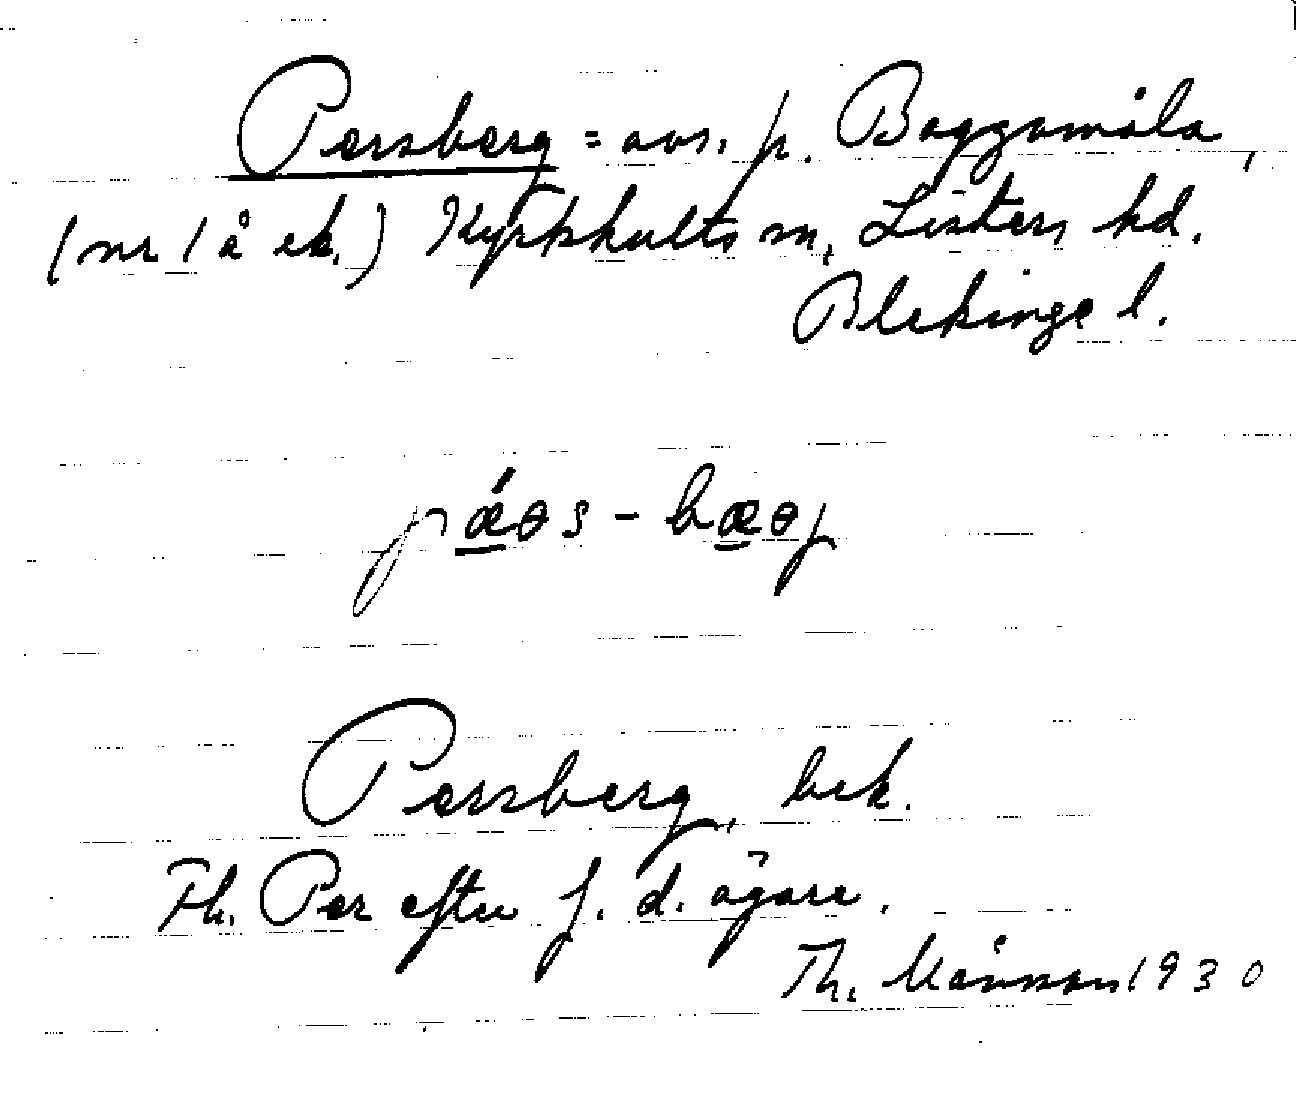 Persberg = avs. p. Baggamåla,
(nr 1 å ek.) Kyrkhults sn, Listers hd.
Blekinge l.
pǽəs - bæəj
Persberg, bek.
Fh. Per efter f. d. ägare.
Th. Månsson 1930